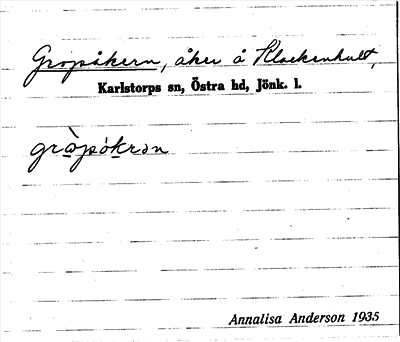 Gropåkern, åker å Klockenhult,
Karlstorps sn, Östra hd, Jönk. l.
grò̱pòḵrən
Annalisa Anderson 1935